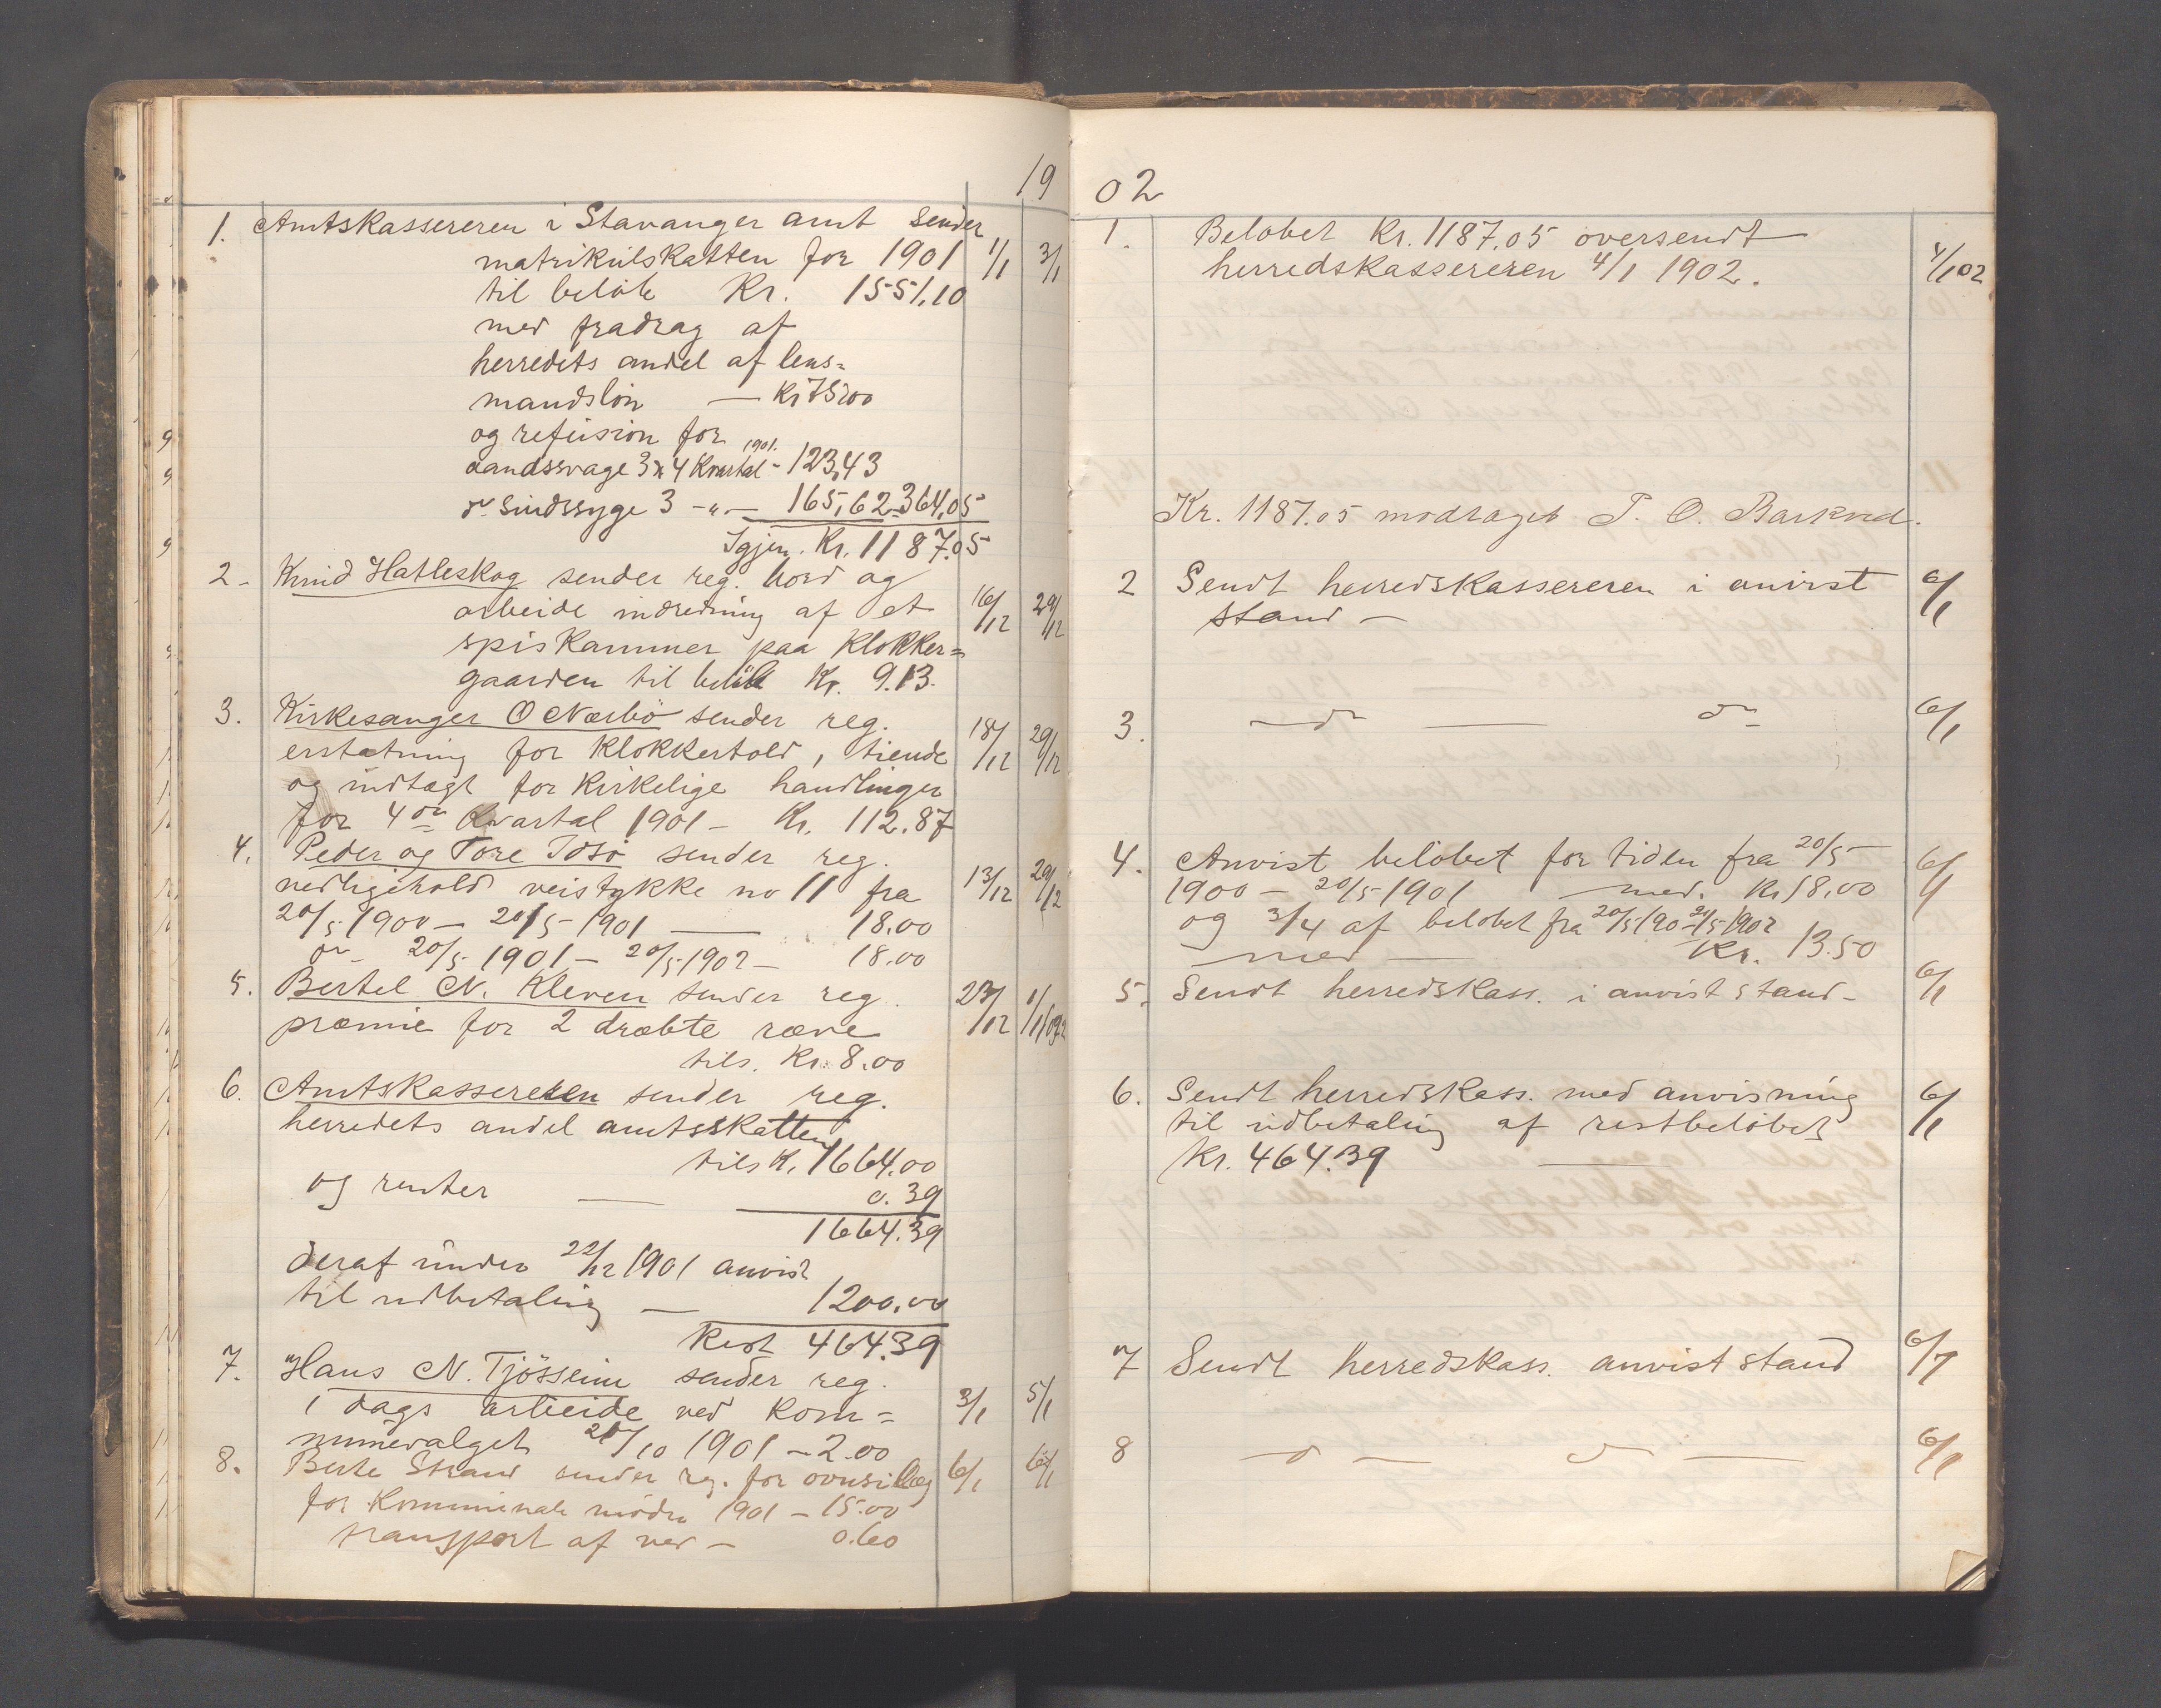 19
1. Amtskassereren i Stavanger amt sender
matrikulskatten for 1901 1/1 3/1
til beløb Kr. 1551,10
med fradrag af
herredets andel af lens=
mandsløn — Kr 75.00
og refusion for
aandssvage 3 & 4 Kvartal 1901. - 123,43
do Sindssyge 3 -"- 165,62 364,05
Igjen. Kr. 1187.05
2. Knud Hatleskog sender reg. bord og
arbeide indredning af et 16/12 29/12
spiskammer paa Klokker=
gaarden til beløb Kr. 9.13.
3. Kirkesanger O Nærbø sender reg.
erstatning for Klokkertold, tiende 18/12 29/12
og indtægt for Kirkelige handlinger
for 4de Kvartal 1901 - Kr. 112.87
4. Peder og Tore Idsø sender reg.
vedligehold veistykke no 11 fra 13/12 29/12
20/5 1900 - 20/5 1901 — 18.00
do - 20/5 1901 - 20/5 1902 - 18.00
5. Bertel N. Kleven sender reg.
præmie for 2 dræbte ræve 23/12 1/1 02
tils. Kr. 8.00
6. Amtskassereren sender reg.
herredets andel amtsskatten
tils K. 1664.00
og renter — 0.39
1664.39
deraf under 22/12 1901 anvist
til udbetaling — 1200.00
Rest 464.39
7. Hans N. Tjøsseim sender reg.
1 dags arbeide ved Kom= 3/1 5/1
munevalget 28/10 1901 - 2.00
8. Berte Strand sender reg. for ovnsilæg 6/1 6/1
for Kommunale møder 1901 - 15.00
transport af ved - 0.60
02
1. Beløbet Kr. 1187,05 oversendt
herredskassereren 4/1 1902. 4/1 02
Kr. 1187.05 modtaget P. O. Barkved.
2 Sendt herredskassereren i anvist 6/1
stand -
3. — do — do 6/1
4. Anvist beløbet for tiden fra 20/5 6/1
1900 - 20/5 1901 med. Kr 18.00
og 3/4 af beløbet fra 20/5 190 - 20/5 1902
med — Kr. 13.50
5. Sendt herredskass. i anvist stand - 6/1
6. Sendt herredskass. med anvisning 6/1
til udbetaling af restbeløbet
Kr. 464.39 —
7 Sendt herredskass. anvist stand 6/1
8 — do — do — 6/1